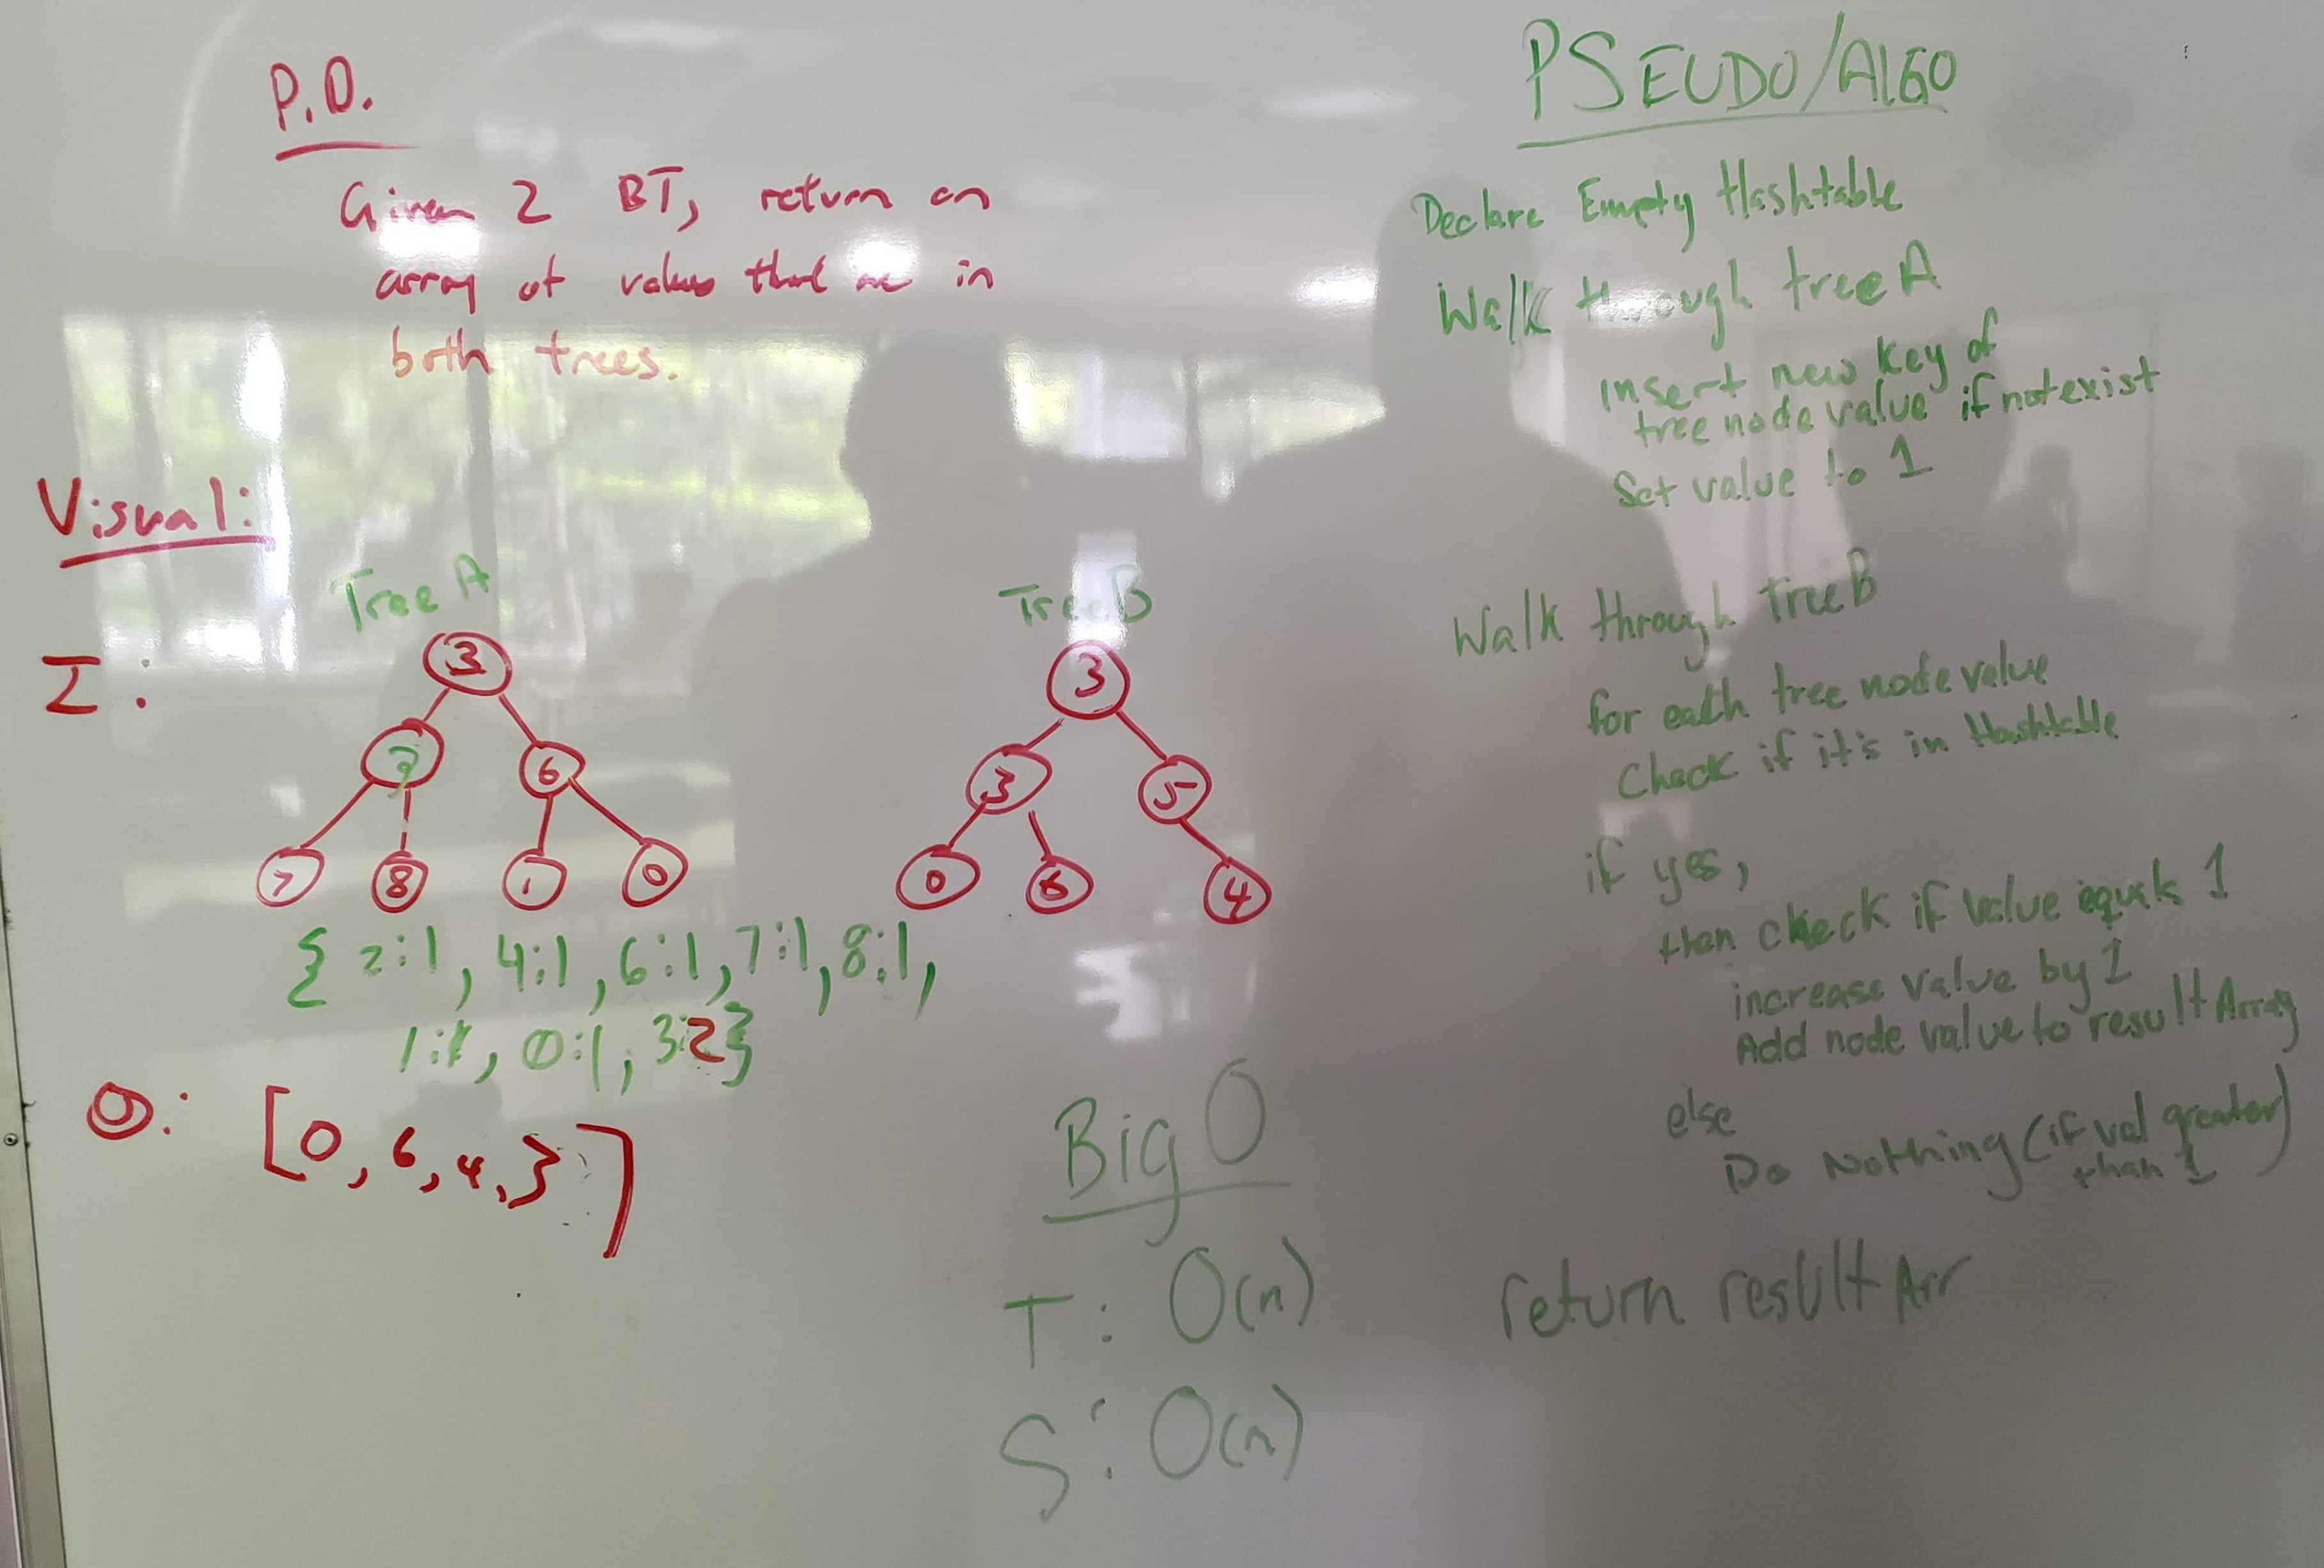 P.D.
Given 2 BT, return an
array of values that are in
both trees.
Visual:
I:
Tree A
3
6
7 8 1 0
Tree B
3
3 5
0 6 4
{ 2:1, 4:1, 6:1, 7:1, 8:1,
1:1, 0:1, 3:2}
O: [0, 6, 4, 3 ]
Big O
T: O(n)
S: O(n)
PSEUDO/ALGO
Declare Empty Hashtable
Walk through treeA
Insert new key of
tree node value if not exist
Set value to 1
Walk through treeB
for each tree node value
Check if it's in Hashtable
if yes,
then check if value equals 1
increase value by 1
Add node value to result Array
else
Do Nothing (if val greater
than 1)
return result Arr